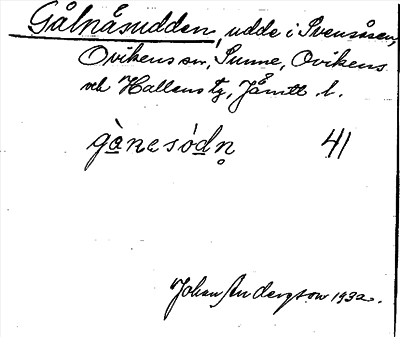 Gålnåsudden, udde i Svensåsen,
Ovikens sn, Sunne, Ovikens
och Hallens tg, Jämtl. l.
gànesódn 41
Johan Andersson 1932.